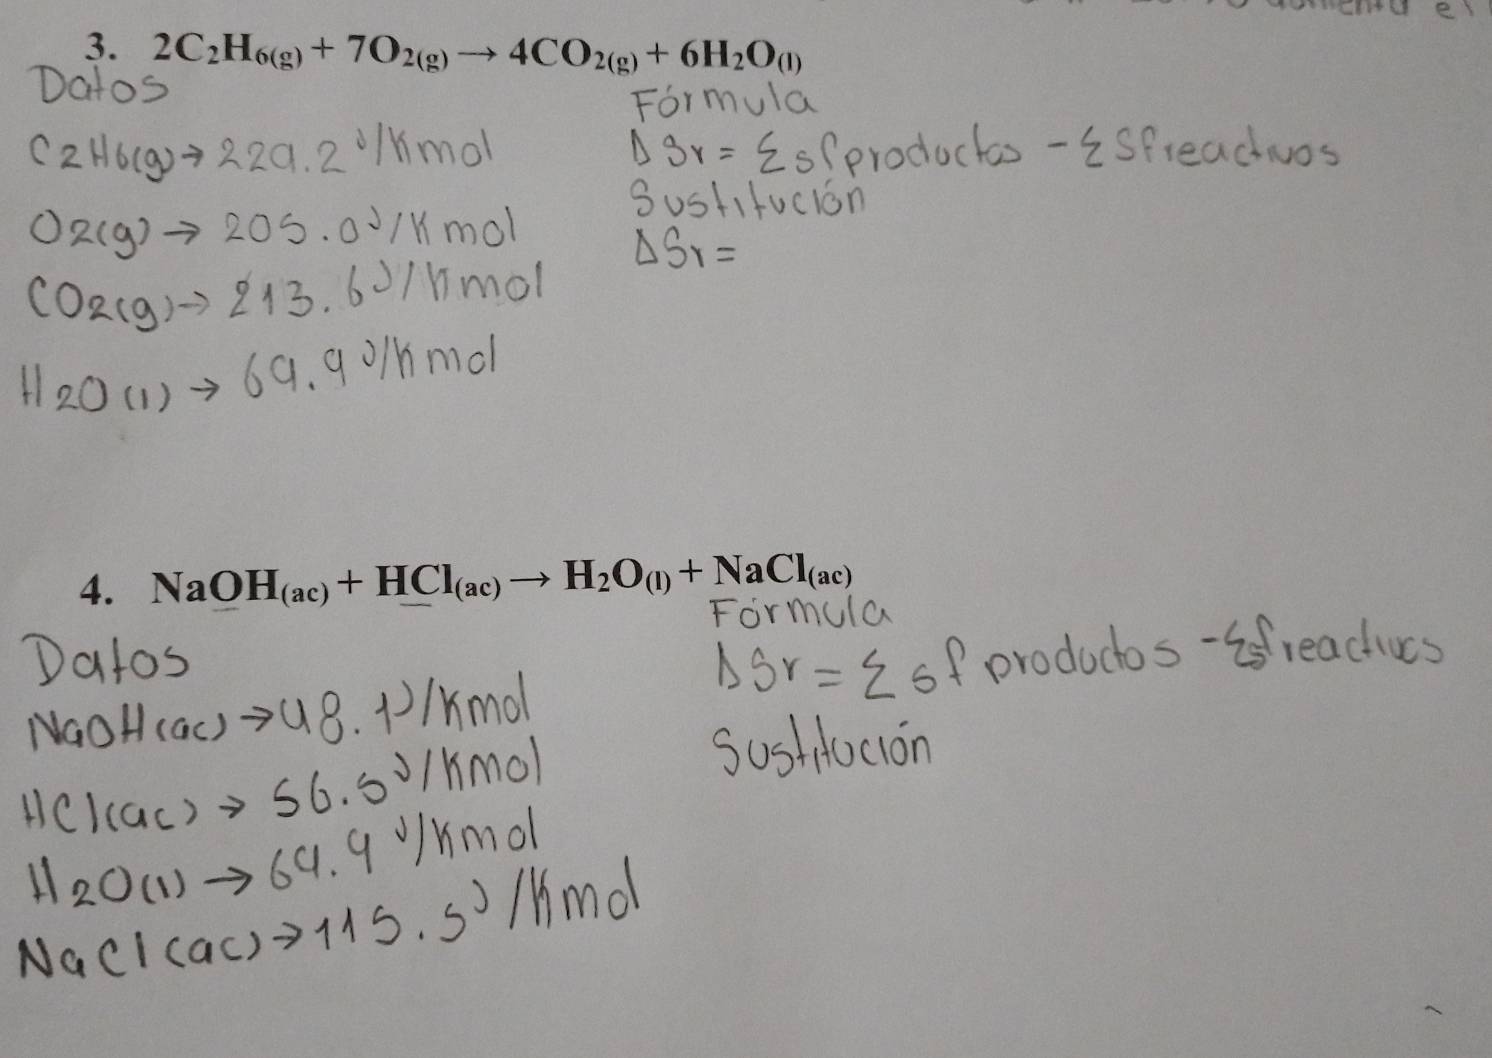 aumenta el
3. 2C₂H₆(g) + 7O₂(g) → 4CO₂(g) + 6H₂O(l)
Datos
Fórmula
C2H6(g) → 229.2 J/K mol
ΔSr = Σ Sf productos - Σ Sf reactivos
Sustitución
O2(g) → 205.0 J/K mol
ΔSr =
CO2(g) → 213.6 J/K mol
H2O(l) → 69.9 J/K mol
4. NaOH(ac) + HCl(ac) → H₂O(l) + NaCl(ac)
Fórmula
Datos
ΔSr = Σ Sf productos - Σ Sf reactivos
NaOH(ac) → 48.1 J/K mol
Sustitución
HCl(ac) → 56.5 J/K mol
H2O(l) → 69.9 J/K mol
NaCl(ac) → 115.5 J/K mol